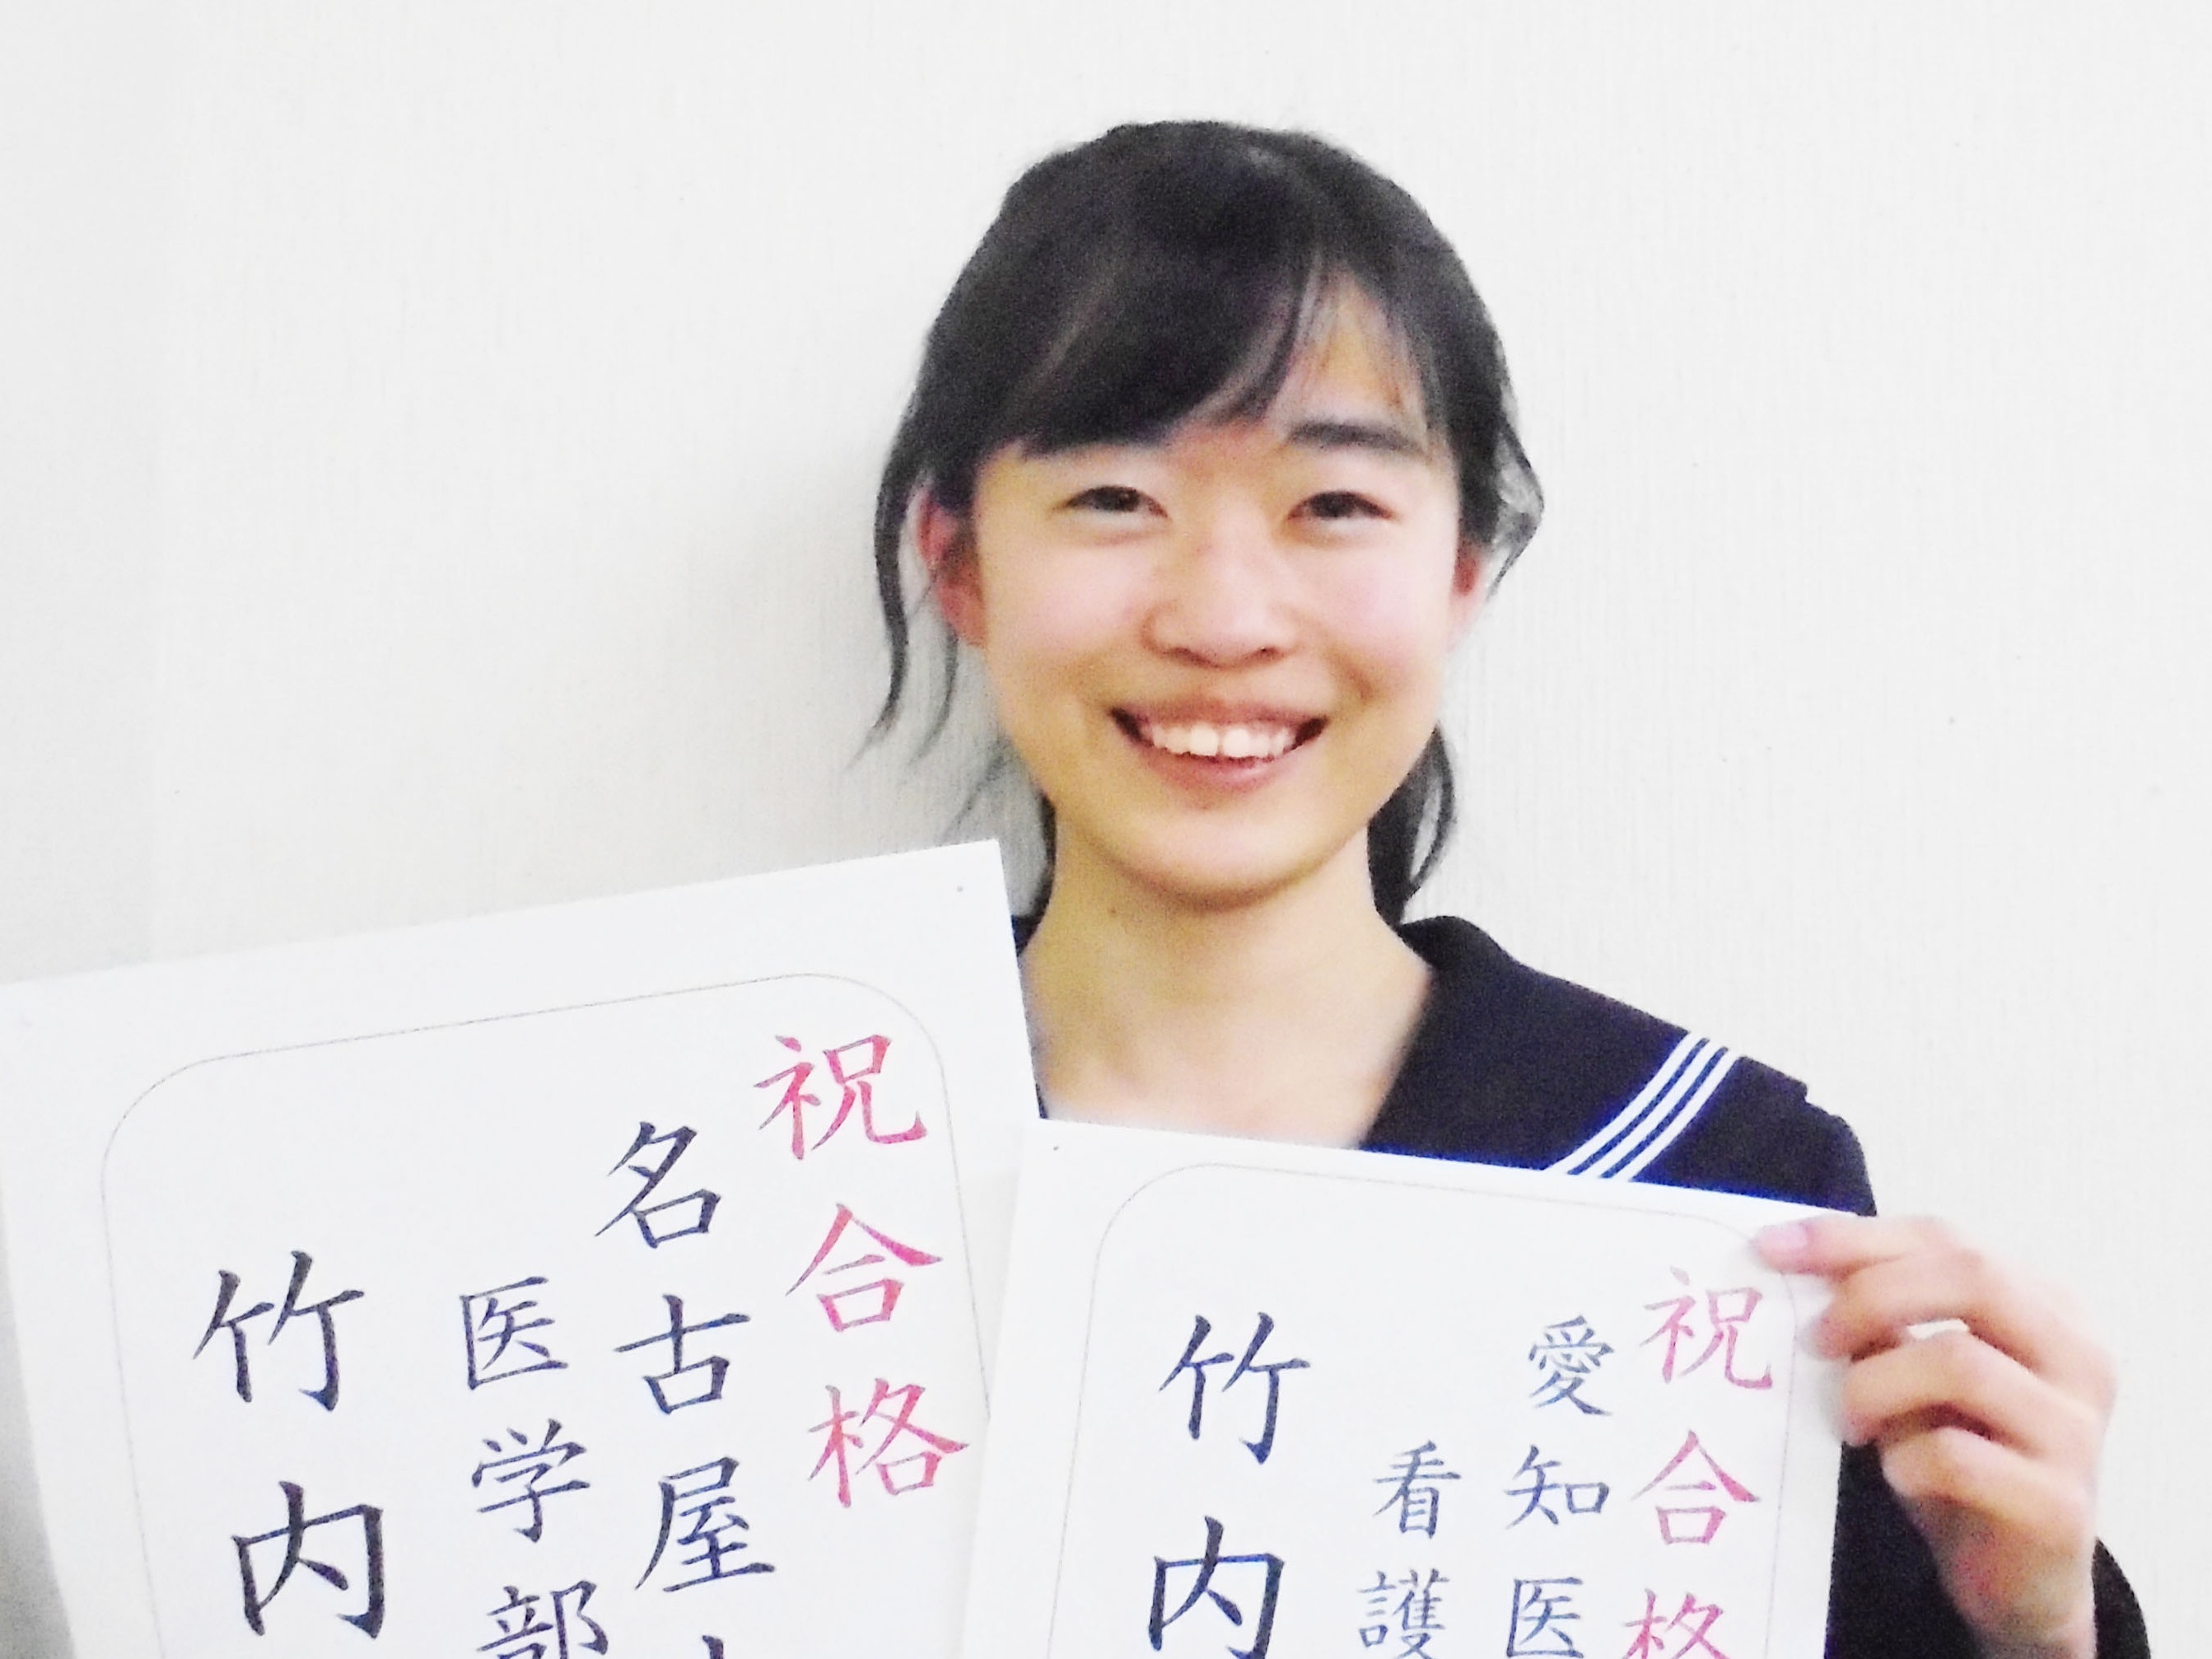 祝合格
名古屋
医学部
竹内
祝合格
愛知医
看護
竹内